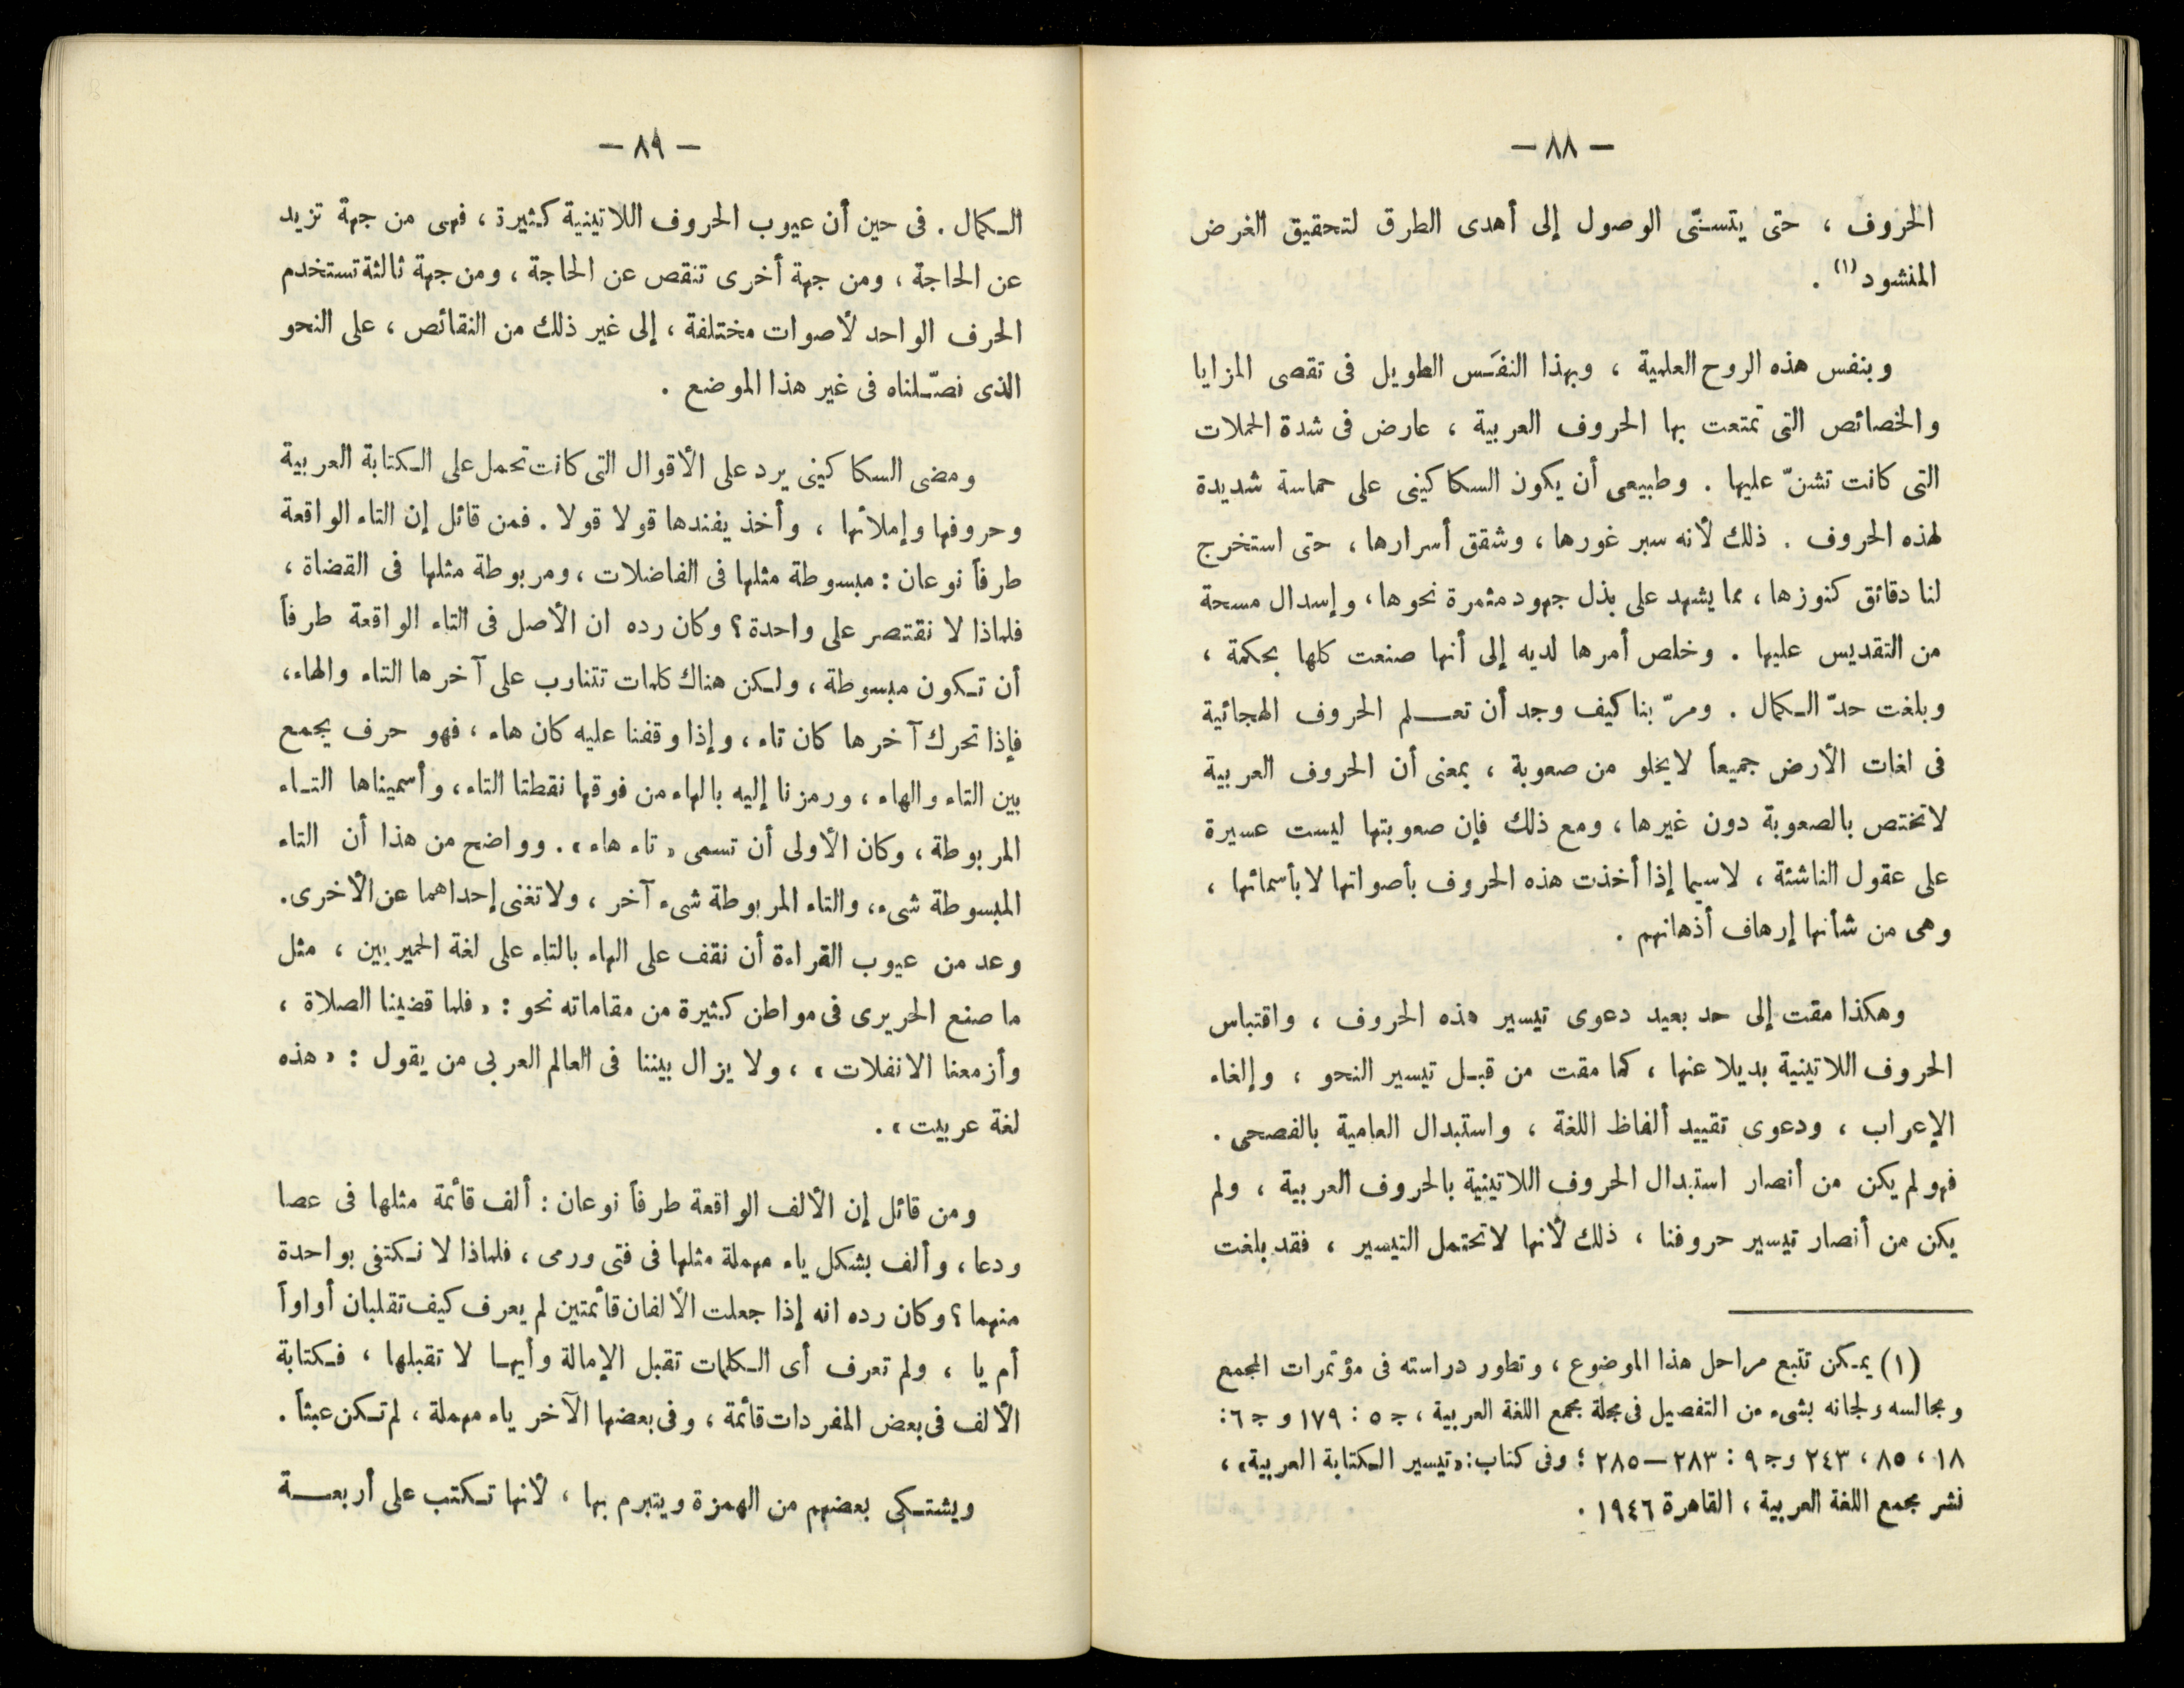 — ٨٨ —
الحروف ، حتى يتسنّى الوصول إلى أهدى الطرق لتحقيق الغرض
المنشود (١) .
وبنفس هذه الروح العلمية ، وبهذا النفَس الطويل فى تقصى المزايا
والخصائص التى تمتعت بها الحروف العربية ، عارض فى شدة الحملات
التى كانت تشنّ عليها . وطبيعى أن يكون السكاكينى على حماسة شديدة
لهذه الحروف . ذلك لأنه سبر غورها ، وشقق أسرارها ، حتى استخرج
لنا دقائق كنوزها ، مما يشهد على بذل جهود مثمرة نحوها ، وإسدال مسحة
من التقديس عليها . وخلص أمرها لديه إلى أنها صنعت كلها بحكمة ،
وبلغت حدّ الكمال . ومرّ بنا كيف وجد أن تعلم الحروف الهجائية
فى لغات الأرض جميعاً لا يخلو من صعوبة ، بمعنى أن الحروف العربية
لا تختص بالصعوبة دون غيرها ، ومع ذلك فإن صعوبتها ليست عسيرة
على عقول الناشئة ، لا سيما إذا أخذت هذه الحروف بأصواتها لا بأسمائها ،
وهى من شأنها إرهاف أذهانهم .
وهكذا مقت إلى حد بعيد دعوى تيسير هذه الحروف ، واقتباس
الحروف اللاتينية بديلا عنها ، كما مقت من قبل تيسير النحو ، وإلغاء
الإعراب ، ودعوى تقييد ألفاظ اللغة ، واستبدال العامية بالفصحى .
فهو لم يكن من أنصار استبدال الحروف اللاتينية بالحروف العربية ، ولم
يكن من أنصار تيسير حروفنا ، ذلك لأنها لا تحتمل التيسير ، فقد بلغت
(١) يمكن تتبع مراحل هذا الموضوع ، وتطور دراسته فى مؤتمرات المجمع
ومجالسه ولجانه بشىء من التفصيل فى مجلة مجمع اللغة العربية ، ج ٥ : ١٧٩ و ج ٦ :
١٨ ، ٨٥ ، ٢٤٣ وج ٩ : ٢٨٣ — ٢٨٥ ؛ وفى كتاب : «تيسير الكتابة العربية» ،
نشر مجمع اللغة العربية ، القاهرة ١٩٤٦ .
— ٨٩ —
الكمال . فى حين أن عيوب الحروف اللاتينية كثيرة ، فهى من جهة تزيد
عن الحاجة ، ومن جهة أخرى تنقص عن الحاجة ، ومن جهة ثالثة تستخدم
الحرف الواحد لأصوات مختلفة ، إلى غير ذلك من النقائص ، على النحو
الذى نصّلناه فى غير هذا الموضع .
ومضى السكاكينى يرد على الأقوال التى كانت تحمل على الكتابة العربية
وحروفها وإملائها ، وأخذ يفندها قولا قولا . فمن قائل إن التاء الواقعة
طرفاً نوعان : مبسوطة مثلها فى الفاضلات ، ومربوطة مثلها فى القضاة ،
فلماذا لا نقتصر على واحدة ؟ وكان رده ان الأصل فى التاء الواقعة طرفاً
أن تكون مبسوطة ، ولكن هناك كلمات تتناوب على آخرها التاء والهاء ،
فإذا تحرك آخرها كان تاء ، وإذا وقفنا عليه كان هاء ، فهو حرف يجمع
بين التاء والهاء ، ورمزنا إليه بالهاء من فوقها نقطتا التاء ، وأسميناها التاء
المربوطة ، وكان الأولى أن تسمى «تاء هاء» . وواضح من هذا أن التاء
المبسوطة شىء ، والتاء المربوطة شىء آخر ، ولا تغنى إحداهما عن الأخرى .
وعد من عيوب القراءة أن نقف على الهاء بالتاء على لغة الحميريين ، مثل
ما صنع الحريرى فى مواطن كثيرة من مقاماته نحو : «فلما قضينا الصلاة ،
وأزمعنا الانفلات» ، ولا يزال بيننا فى العالم العربى من يقول : «هذه
لغة عربيت» .
ومن قائل إن الألف الواقعة طرفاً نوعان : ألف قائمة مثلها فى عصا
ودعا ، وألف بشكل ياء مهملة مثلها فى فتى ورمى ، فلماذا لا نكتفى بواحدة
منهما ؟ وكان رده انه إذا جعلت الألفان قائمتين لم يعرف كيف تقلبان أواواً
أم يا ، ولم تعرف أى الكلمات تقبل الإمالة وأيها لا تقبلها ، فكتابة
الألف فى بعض المفردات قائمة ، وفى بعضها الآخر ياء مهملة ، لم تكن عبثاً .
ويشتكى بعضهم من الهمزة ويتبرم بها ، لأنها تكتب على أربعة